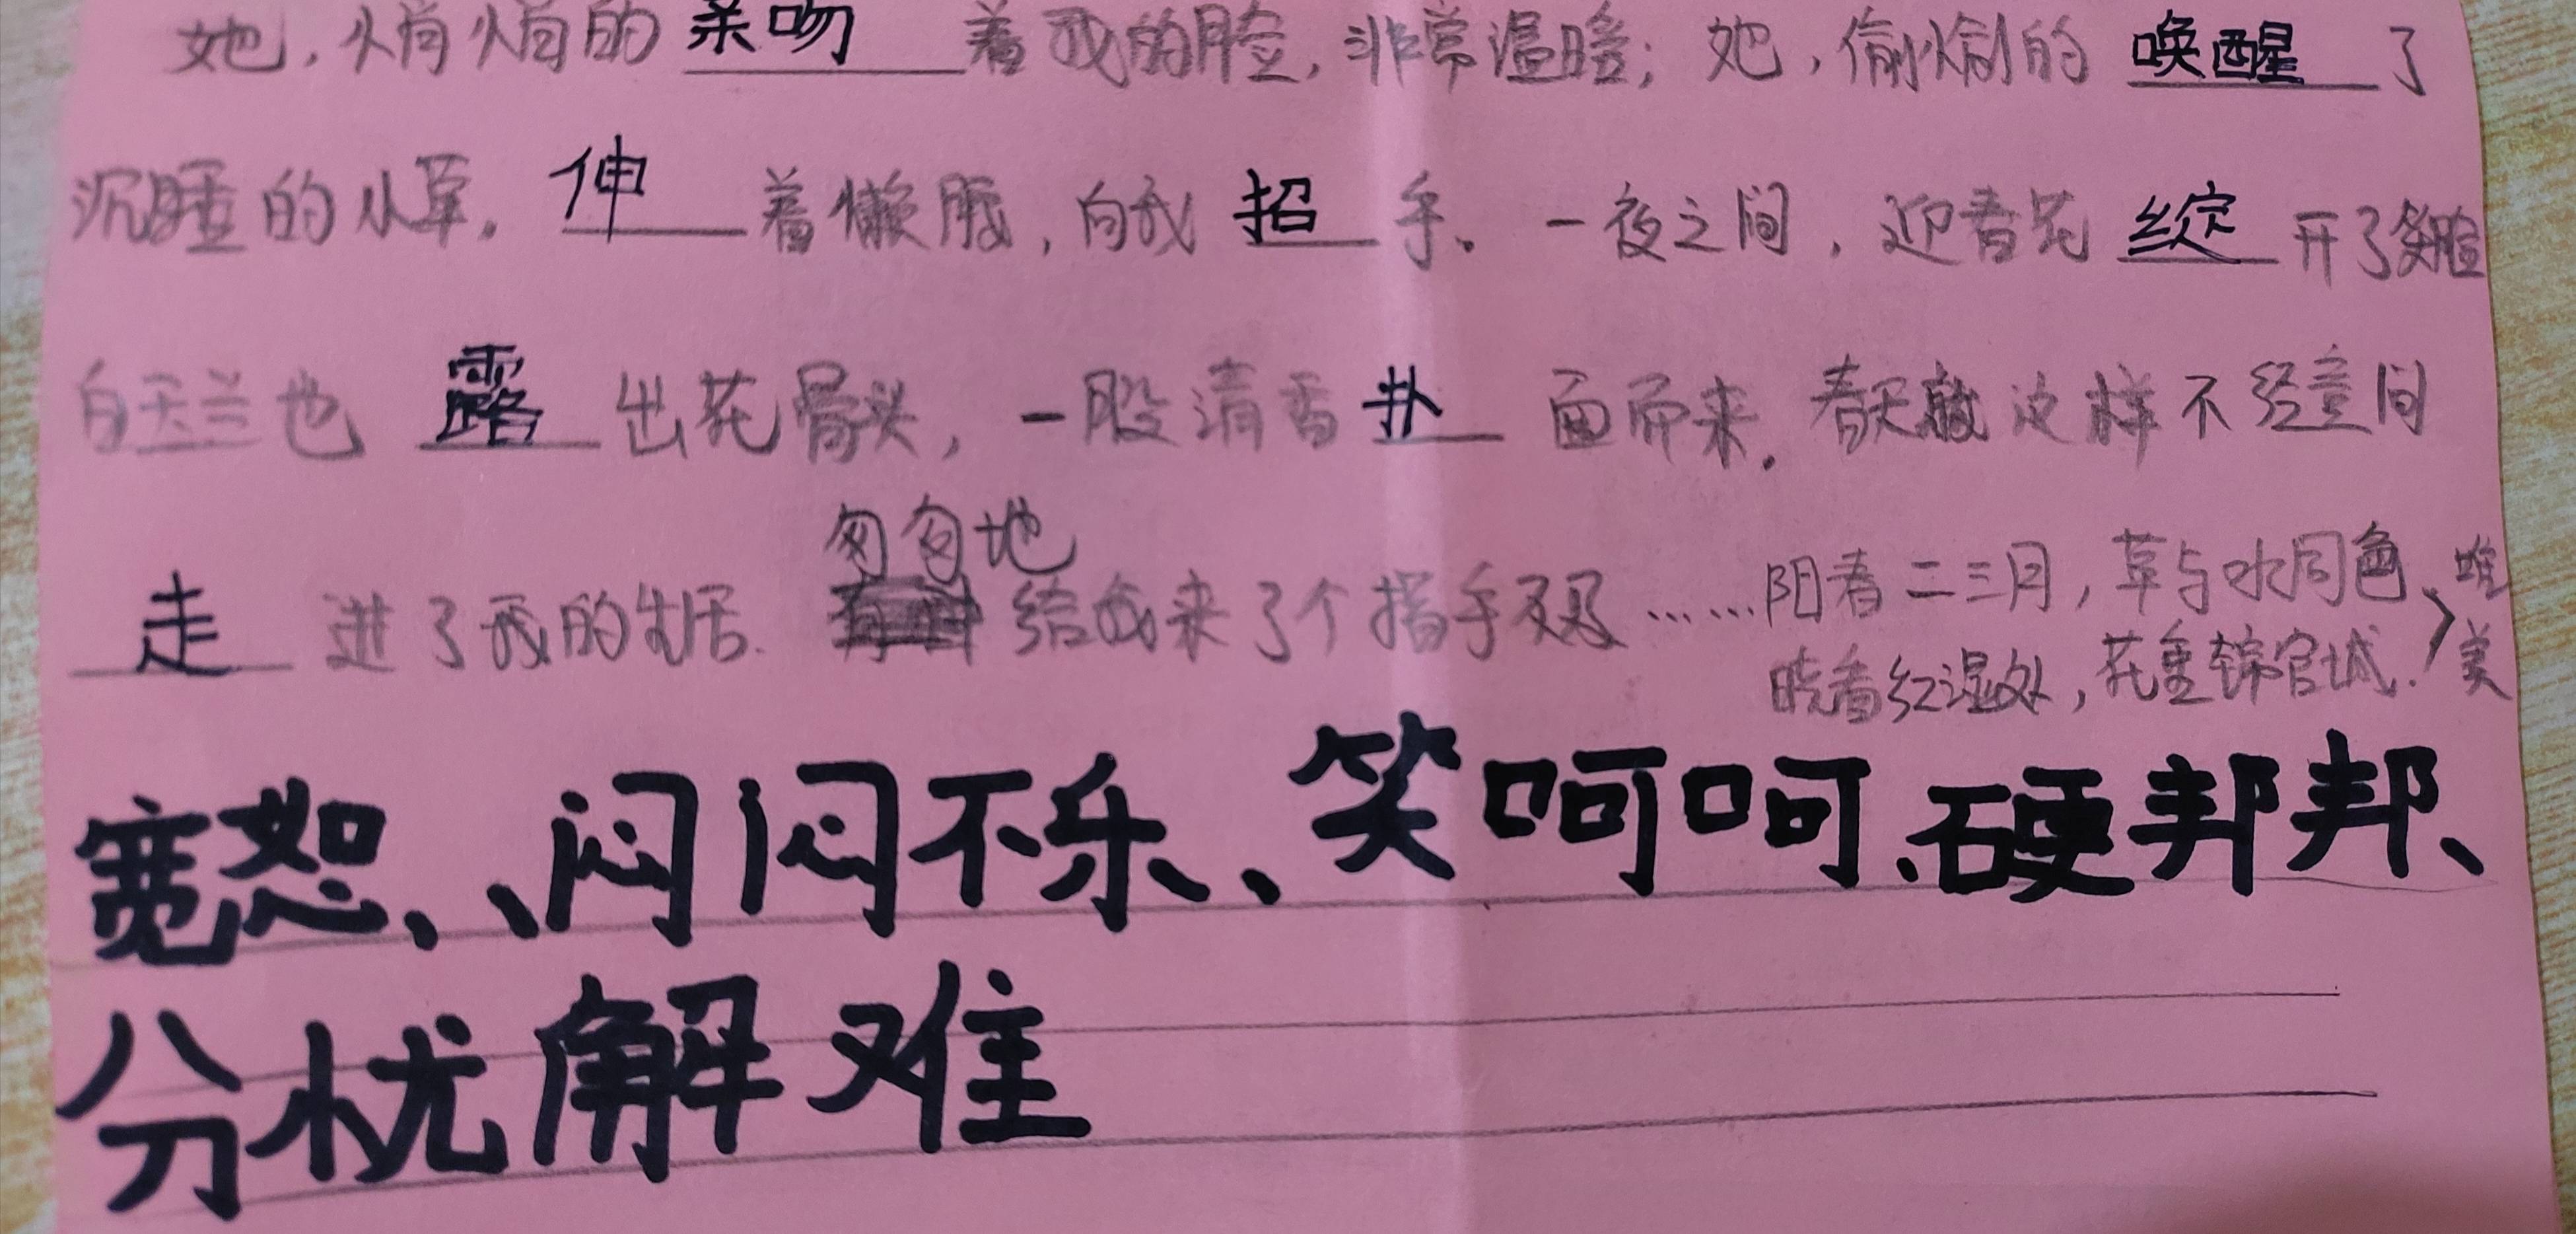 她，悄悄的亲吻着我的脸，非常温暖；她，偷偷的唤醒了
沉睡的小草。伸着懒腰，向我招手。一夜之间，迎春花绽开了笑脸
白玉兰也露出花骨头，一股清香扑面而来。春天就这样不经意间
匆匆地
走进了我的生活。给我来了个措手不及……阳春二三月，草与水同色、
晓看红湿处，花重锦官城. 美
宽恕、、闷闷不乐、笑呵呵、硬邦邦、
分忧解难